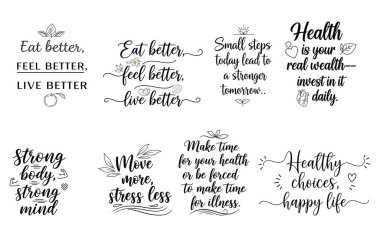 Eat better,
FEEL BETTER,
LIVE BETTER
Eat better,
feel better,
live better
Small steps
today lead to
a stronger
tomorrow..
Health
is your
real wealth--
invest in it
daily.
Strong
body,
strong
mind
Move
more,
stress less
Make time
for your health
or be forced
to make time
for illness.
Healthy
choices,
happy life